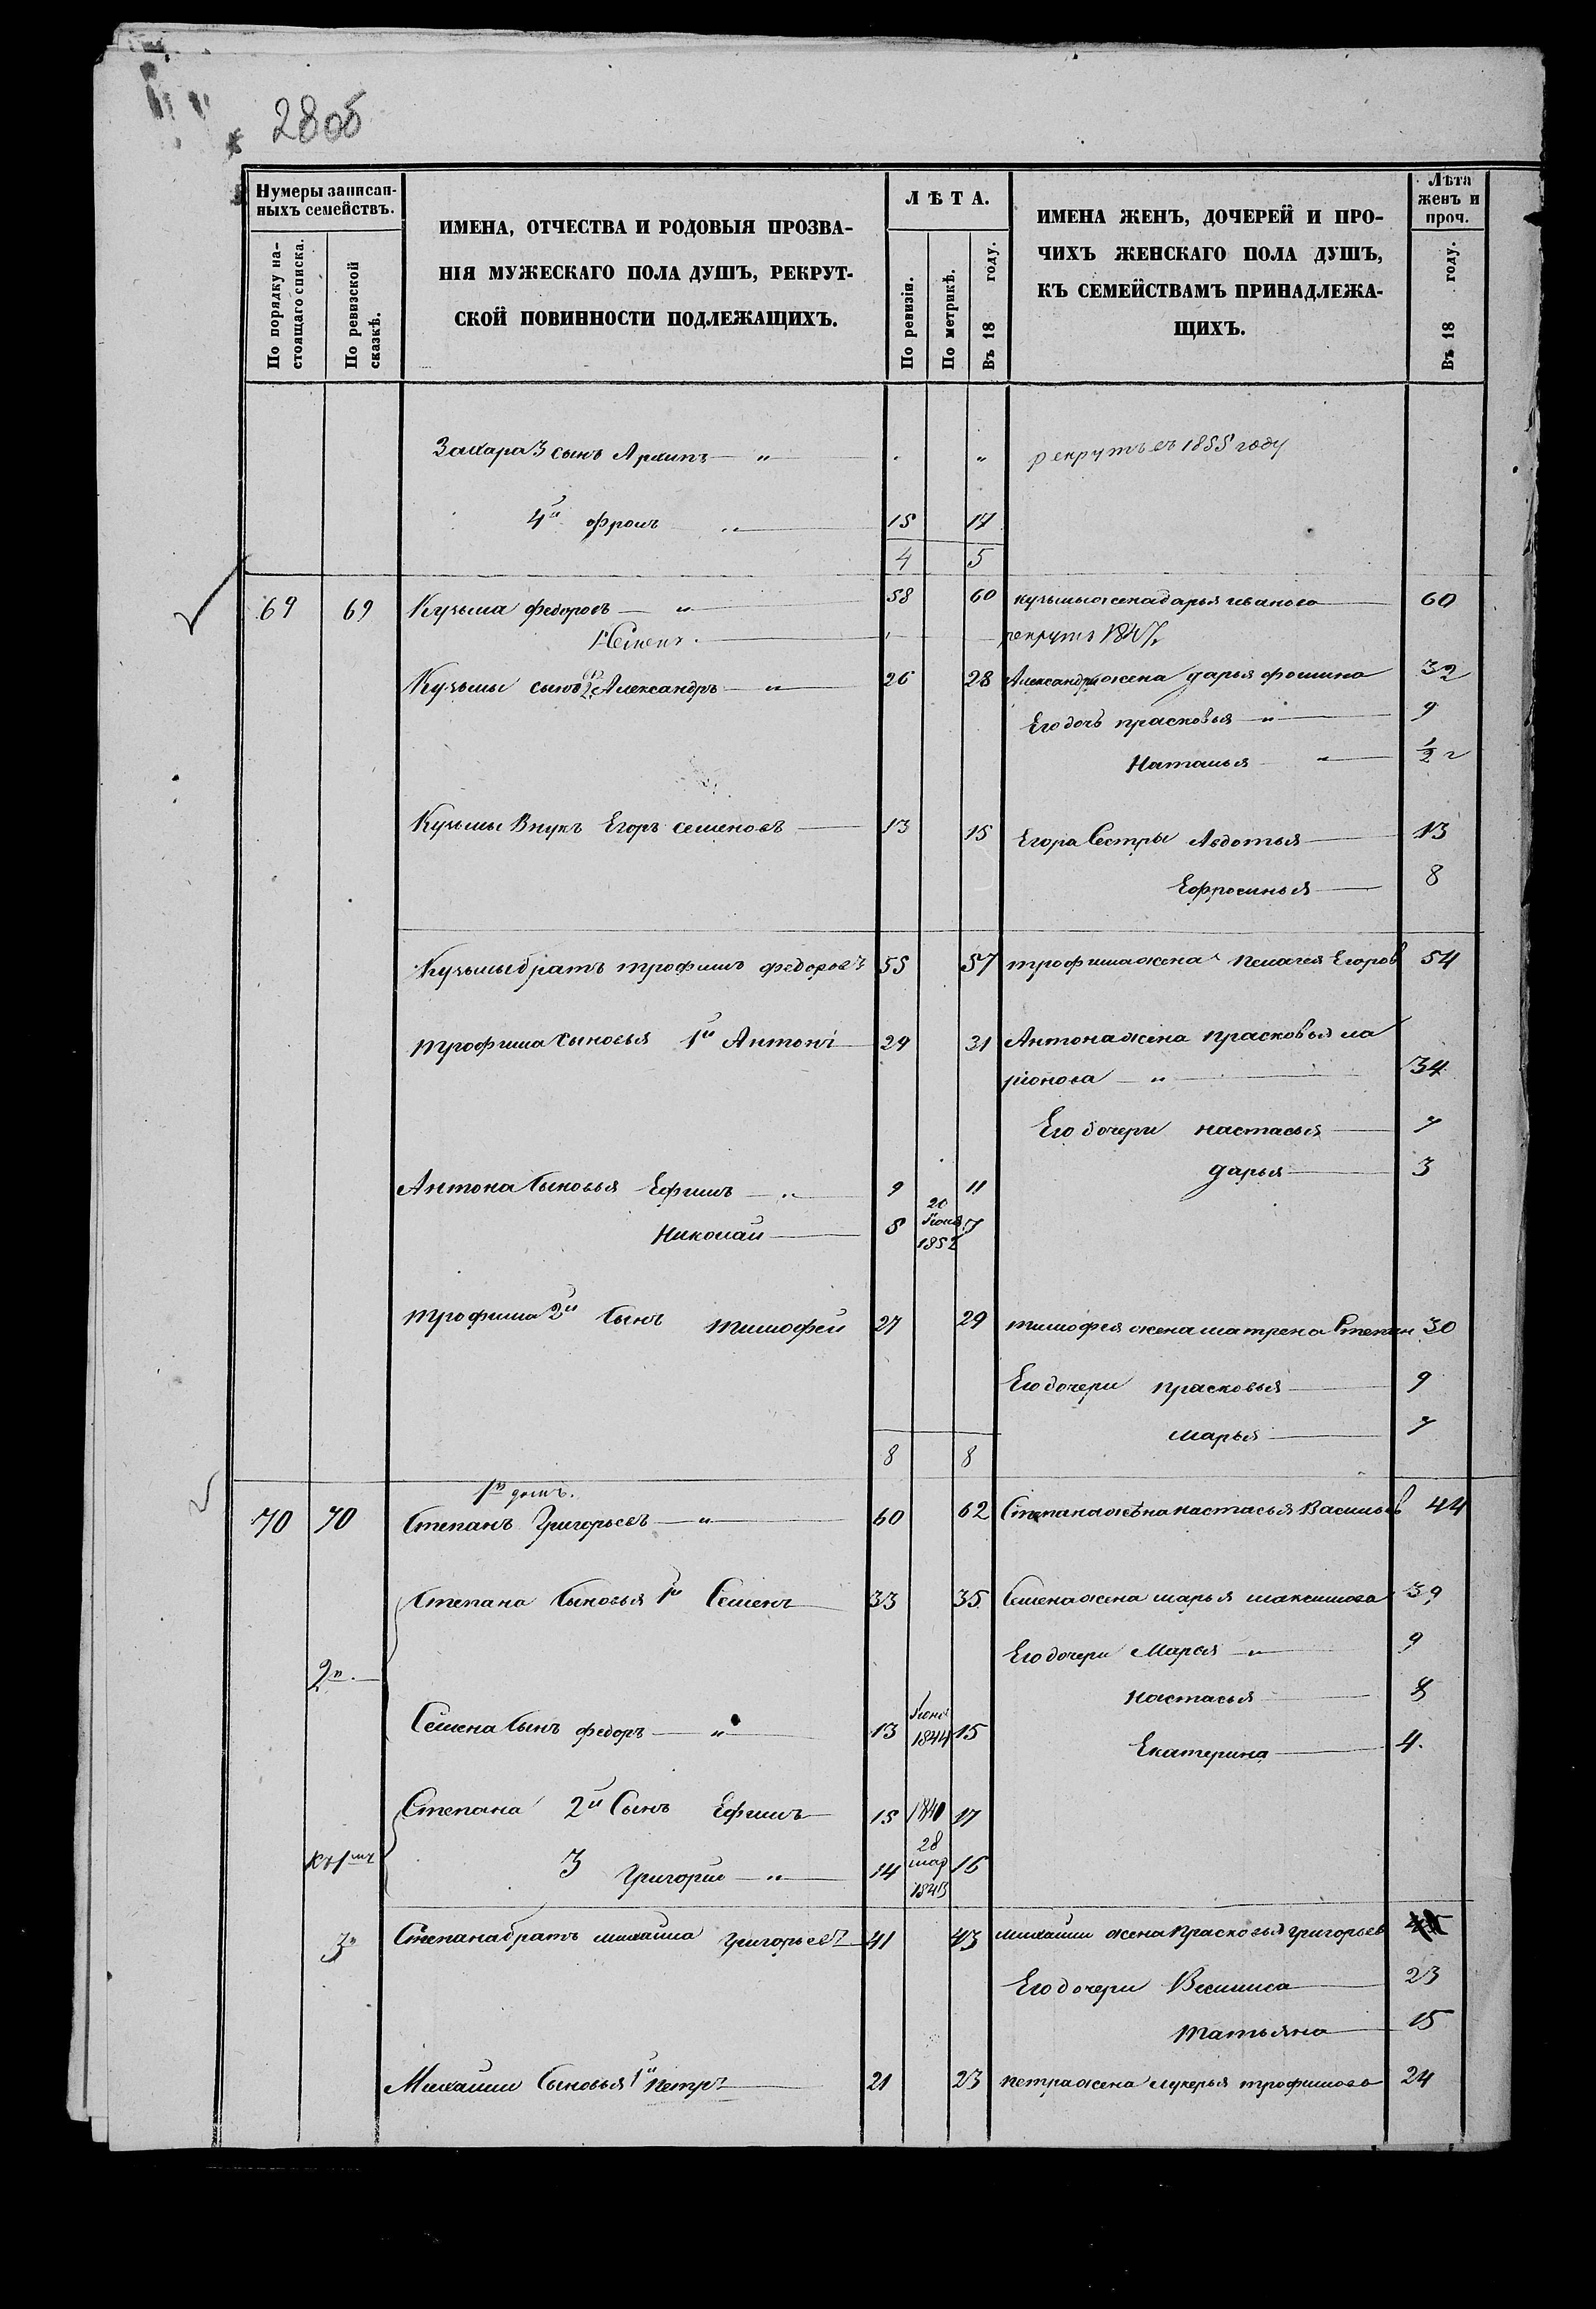 28об
Нумеры записан-
ныхъ семействъ.
По порядку на-
стоящаго списка.
По ревизской
сказкѣ.
ИМЕНА, ОТЧЕСТВА И РОДОВЫЯ ПРОЗВА-
НІЯ МУЖЕСКАГО ПОЛА ДУШЪ, РЕКРУТ-
СКОЙ ПОВИННОСТИ ПОДЛЕЖАЩИХЪ.
ЛѢТА.
По ревизіи.
По метрикѣ.
Въ 18 году.
ИМЕНА ЖЕНЪ, ДОЧЕРЕЙ И ПРО-
ЧИХЪ ЖЕНСКАГО ПОЛА ДУШЪ,
КЪ СЕМЕЙСТВАМЪ ПРИНАДЛЕЖА-
ЩИХЪ.
Лѣта
женъ и
проч.
Въ 18 году.
Захара 3 сынъ Архипъ — " " рекрутъ въ 1855 году
4й Фролъ " 15 17
4 5
69 69 Кузьма федоровъ — " 58 60 кузьмы жена дарья иванова 60
1 Семенъ рекрутъ 1847
Кузьмы сынъ 2й Александръ — " 26 28 Александра жена дарья фомина 32
Его дочь прасковья — " 9
Наталья " 1/2 г
Кузьмы Внукъ Егоръ семеновъ 13 15 Егора Сестры Авдотья 13
Ефросинья 8
Кузьмы братъ трофимъ федоровъ 55 57 трофима жена пелагея Егоров 54
трофима сыновья 1й Антонъ 29 31 Антона жена прасковья ла
ріонова — " 34
Его дочери настасья 7
дарья 3
Антона Сыновья Ефимъ — " 9 11
Николай 5 20 Іюня 1852 7
трофима 2й Сынъ тимофей 27 29 тимофея жена матрена Степан 30
Его дочери прасковья 9
марья 7
8 8
1й домъ.
70 70 Степанъ Григорьевъ — " 60 62 Степана жена настасья Васильев 44
Степана Сыновья 1й Семенъ 33 35 Семена жена марья максимова 39
2й Его дочери Марья — " 9
настасья 8
Семена Сынъ федоръ — " 13 Іюня 1844 15
Екатерина 4.
Степана 2й Сынъ Ефимъ 15 1840 17
къ 1му 3 Григорій — " 14 28 мар 1843 16
3й Степана братъ михайла Григорьевъ 41 43 михайлы жена Прасковья григорьев
Его дочери Василиса 23
татьяна 15
Михайлы Сыновья 1й петръ 21 23 петра жена лукерья трофимова 24